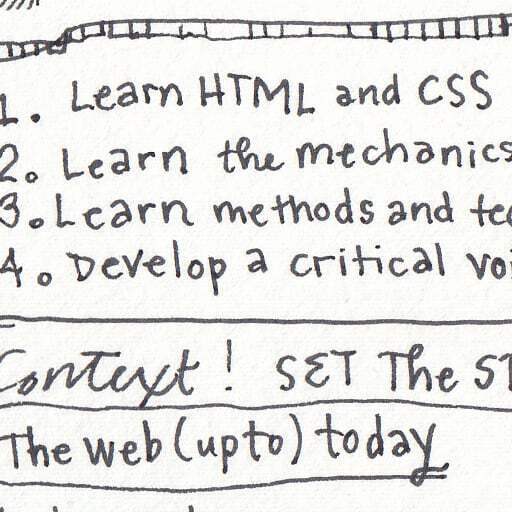 1. Learn HTML and CSS
2. Learn the mechanics
3. Learn methods and
4. Develop a critical
Context! SET The
The web (up to) today